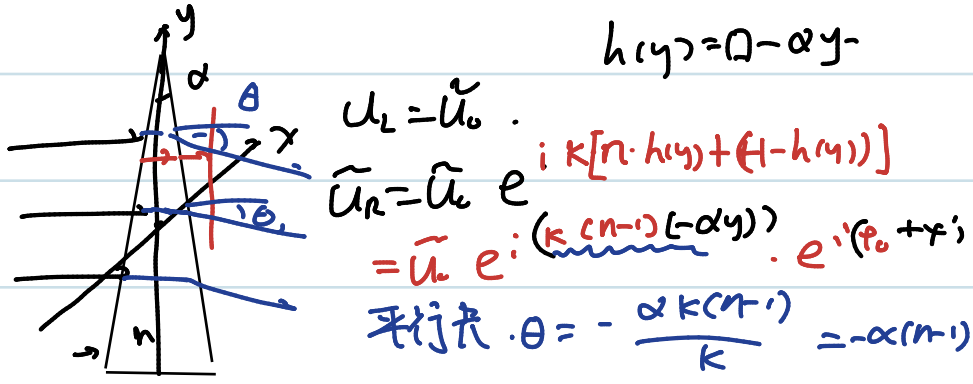 y
α
θ
x
θ
n
h(y)=□-αy-
U_L=Ũ₀.
Ũ_R=Ũ₀ e^{i k[n·h(y)+(H-h(y))]}
=Ũ₀ e^{i(k(n-1)(-αy))}·e^{i(φ₀+
平行光.θ=-αk(n-1)/k=-α(n-1)